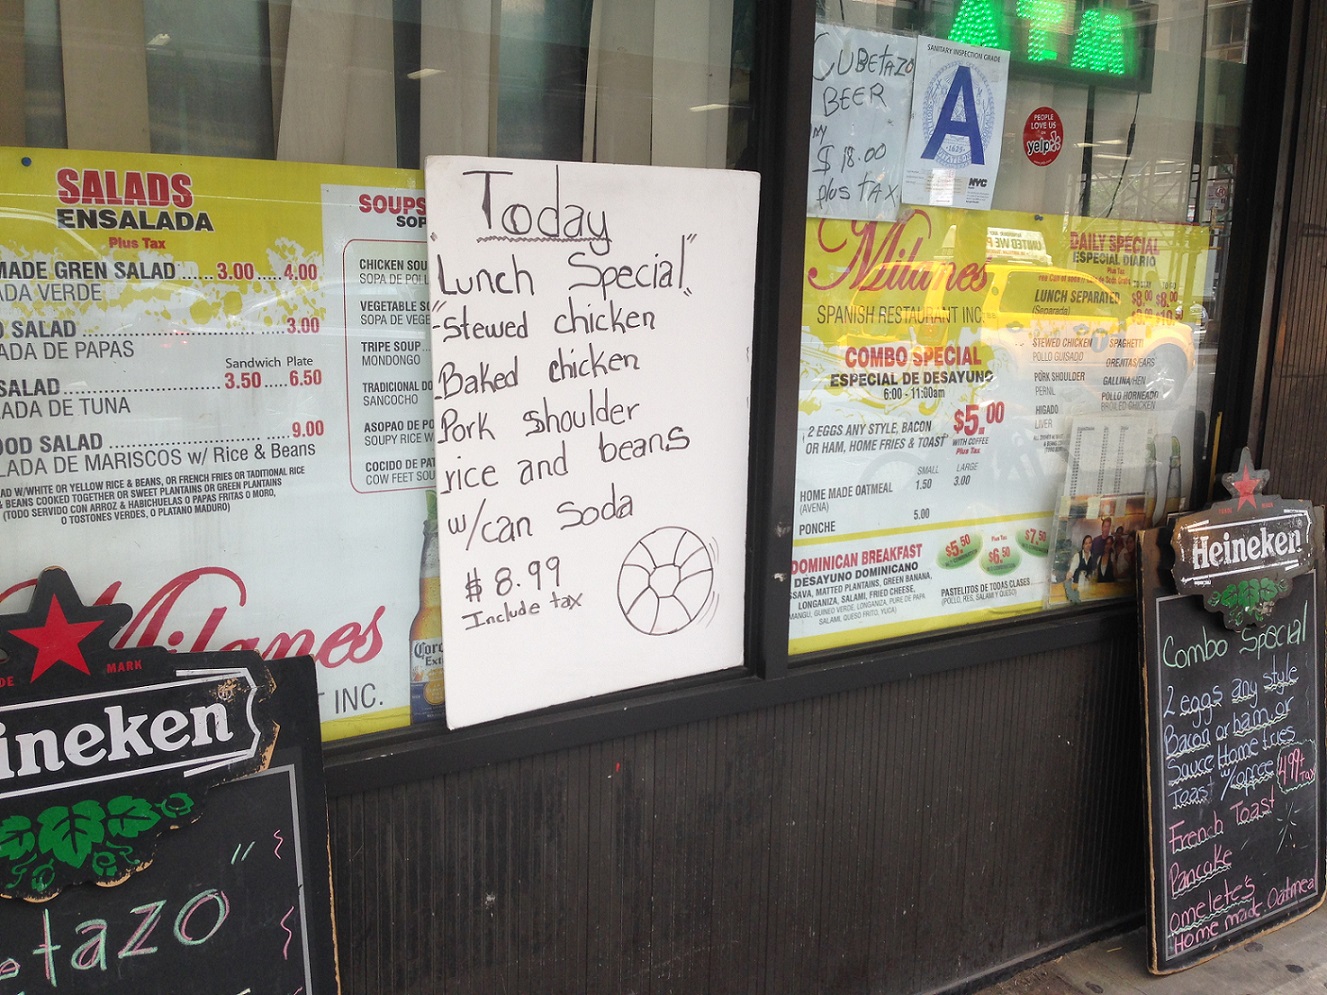 SALADS
ENSALADA
Plus Tax
MADE GREN SALAD.......3.00.....4.00
ADA VERDE
SALAD 3.00
ADA DE PAPAS
Sandwich Plate
SALAD 3.50.....6.50
ADA DE TUNA
OOD SALAD 9.00
LADA DE MARISCOS w/ Rice & Beans
AD W/WHITE OR YELLOW RICE & BEANS, OR FRENCH FRIES OR TADITIONAL RICE
& BEANS COOKED TOGETHER OR SWEET PLANTAINS OR GREEN PLANTAINS
(TODO SERVIDO CON ARROZ & HABICHUELAS O PAPAS FRITAS O MORO,
O TOSTONES VERDES, O PLATANO MADURO)
Milanes
T INC.
SOUPS
SOP
CHICKEN SOU
SOPA DE POLL
VEGETABLE S
SOPA DE VEGE
TRIPE SOUP
MONDONGO
TRADICIONAL DO
SANCOCHO
ASOPAO DE PO
SOUPY RICE W
COCIDO DE PAT
COW FEET SOU
Coro
Ext
Today
"Lunch Special"
"-Stewed chicken"
Baked chicken
Pork shoulder
rice and beans
w/can soda
$8.99
Include tax
CUBETAZO
BEER
$18.00
plus TAX
SANITARY INSPECTION GRADE
A
1625
NYC
ATM
PEOPLE
LOVE US
yelp
Milanes
SPANISH RESTAURANT INC.
COMBO SPECIAL
ESPECIAL DE DESAYUNO
6:00 - 11:00am
$5.00
WITH COFFEE
Plus Tax
2 EGGS ANY STYLE, BACON
OR HAM, HOME FRIES & TOAST
SMALL LARGE
HOME MADE OATMEAL 1.50 3.00
(AVENA)
PONCHE 5.00
DOMINICAN BREAKFAST
DESAYUNO DOMINICANO
SSAVA, MATTED PLANTAINS, GREEN BANANA,
LONGANIZA, SALAMI, FRIED CHEESE,
MANGU, GUINEO VERDE, LONGANIZA, PURE DE PAPA
SALAMI, QUESO FRITO, YUCA)
$5.50
Plus Tax
$6.50
$7.50
PASTELITOS DE TODAS CLASES
(POLLO, RES, SALAMI Y QUESO)
UNITED WE
DAILY SPECIAL
ESPECIAL DIARIO
Plus Tax
LUNCH SEPARATED $8.00 $8.00
(Separada)
STEWED CHICKEN SPAGHETTI
POLLO GUISADO OREJITAS/EARS
PORK SHOULDER GALLINA/HEN
PERNIL POLLO HORNEADO
HIGADO BROILED CHICKEN
LIVER
DE MARK
ineken
tazo"
TRADE MARK
Heineken
Combo Special
2 eggs any style
Bacon or ham or
Sauce Home fries
Toast w/coffee 4.99+
Tax
French Toast
Pancake
omelete's
Home made Oatmeal